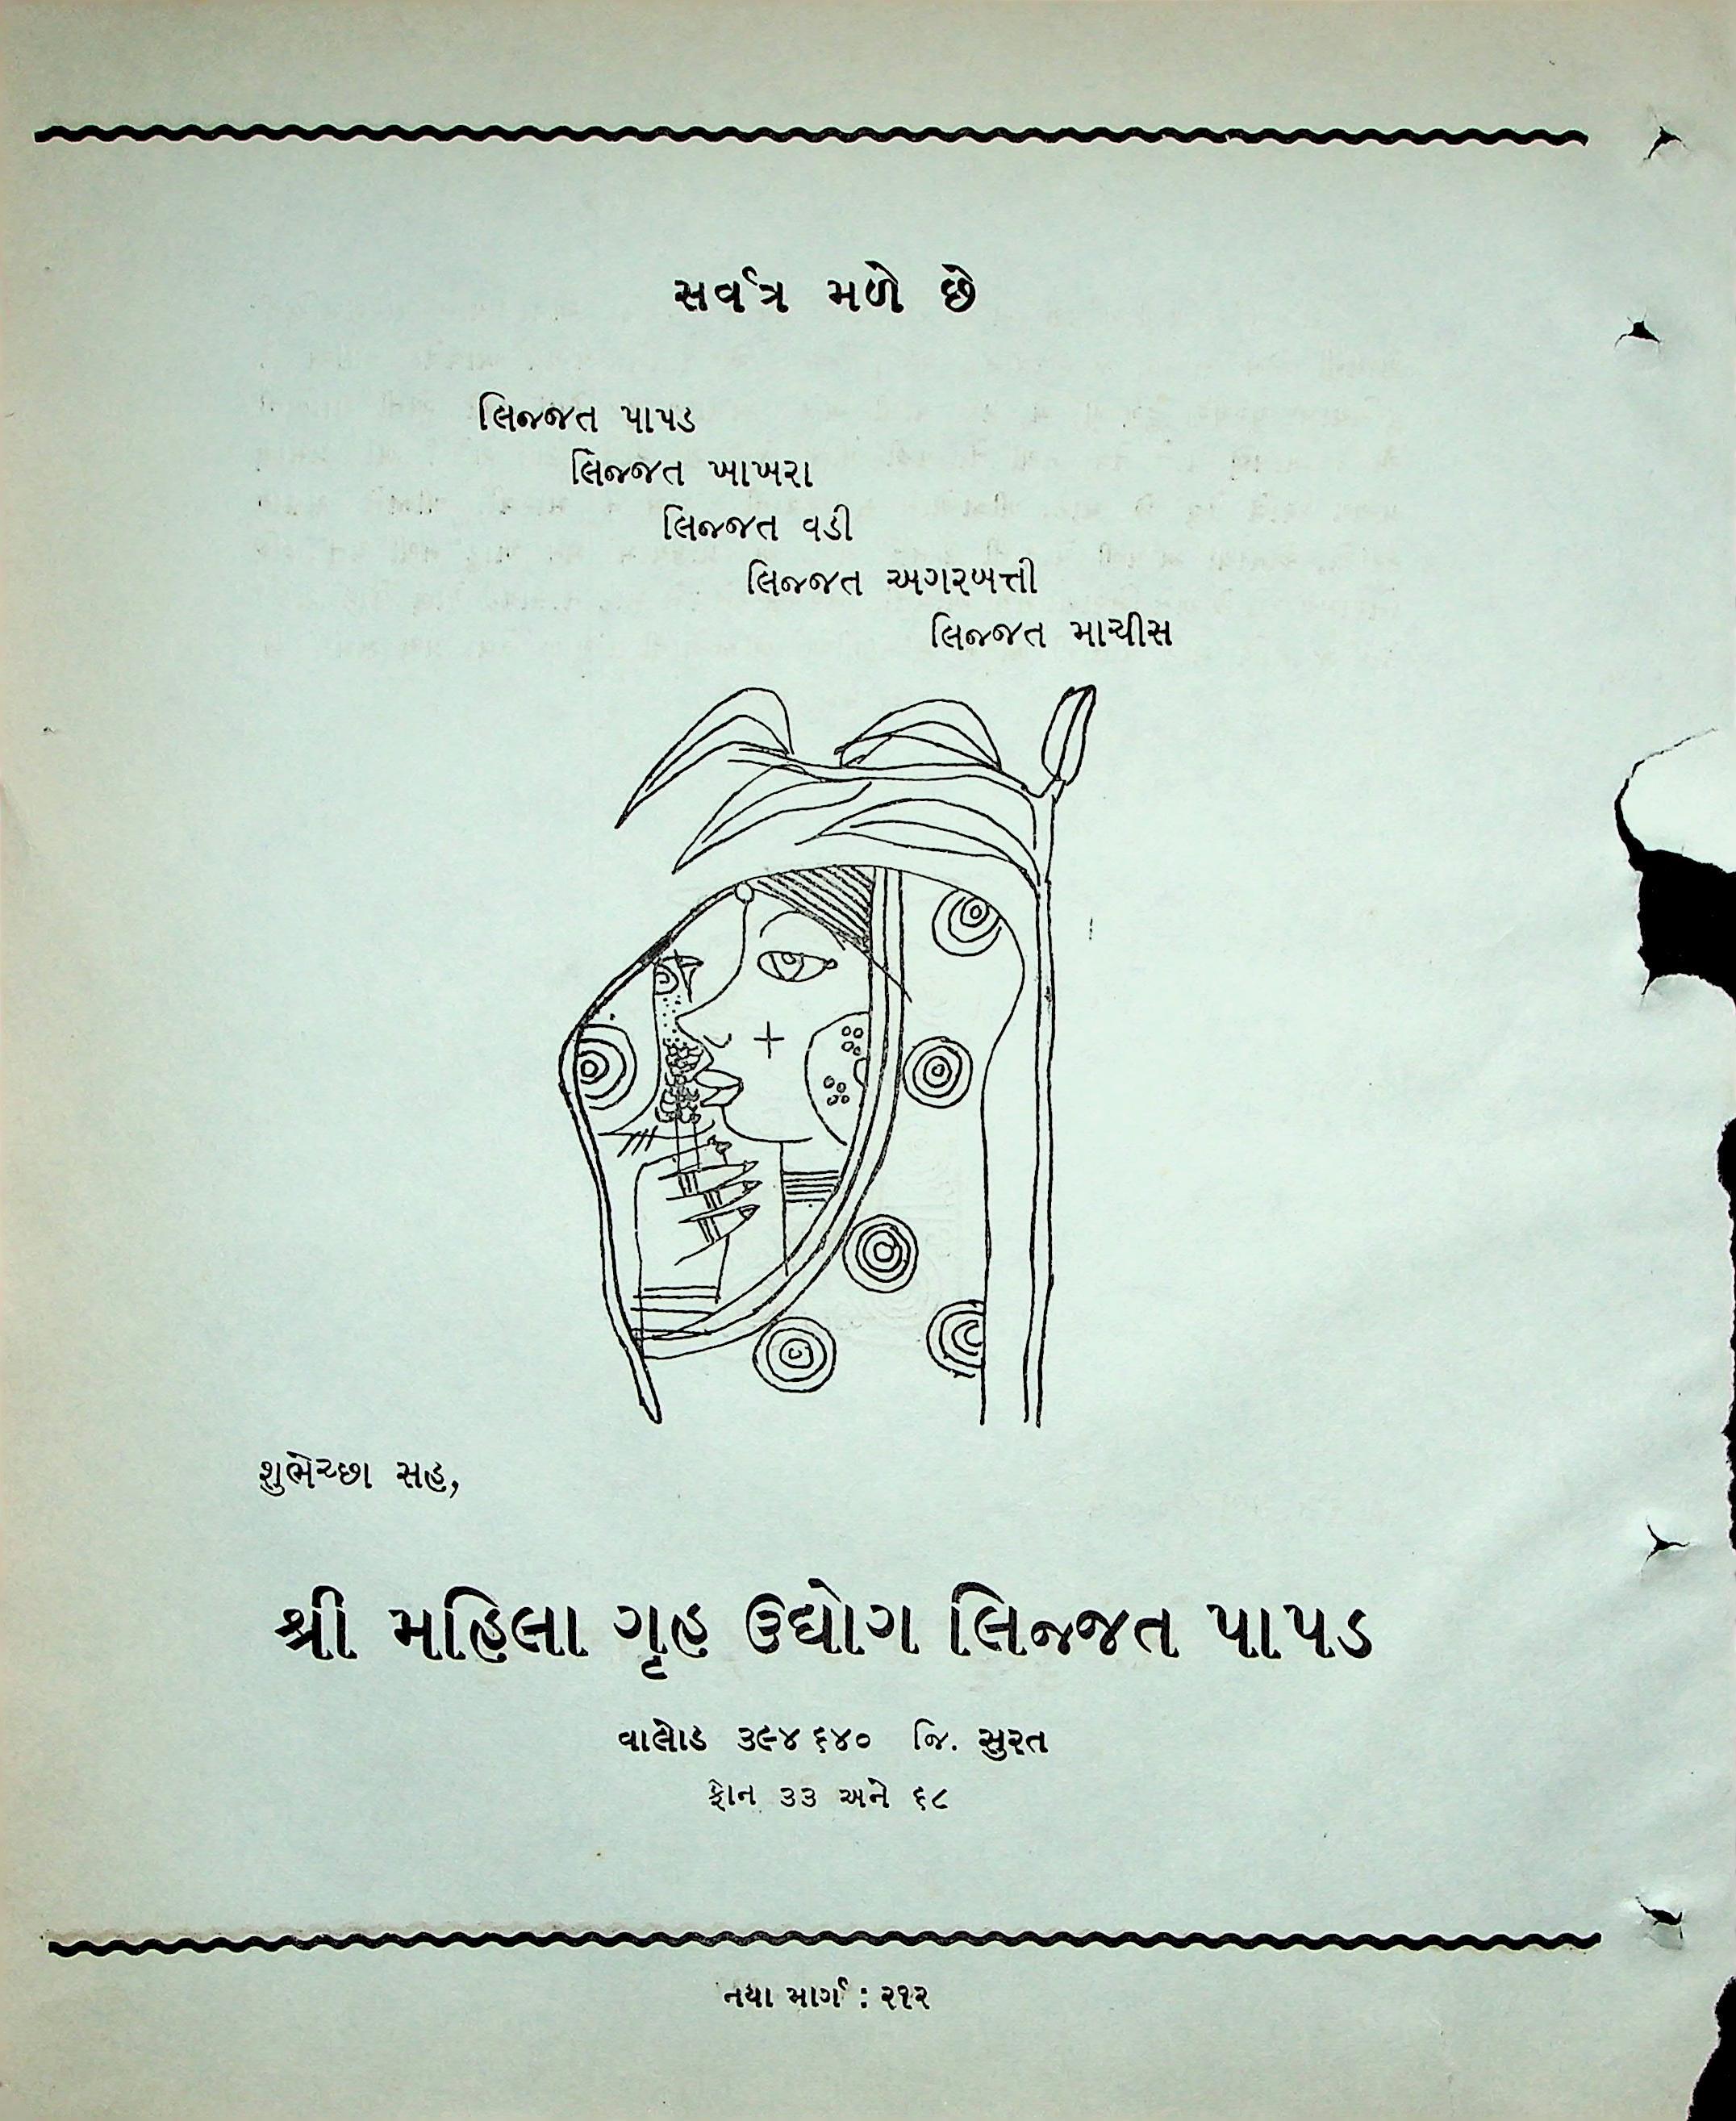 સર્વત્ર મળે છે
લિજ્જત પાપડ
લિજ્જત ખાખરા
લિજ્જત વડી
લિજ્જત અગરબત્તી
લિજ્જત માચીસ
શુભેચ્છા સહ,
શ્રી મહિલા ગૃહ ઉદ્યોગ લિજ્જત પાપડ
વાલોડ ૩૯૪ ૬૪૦ જિ. સુરત
ફોન ૩૩ અને ૬૮
નયા માર્ગ : ૨૧૨